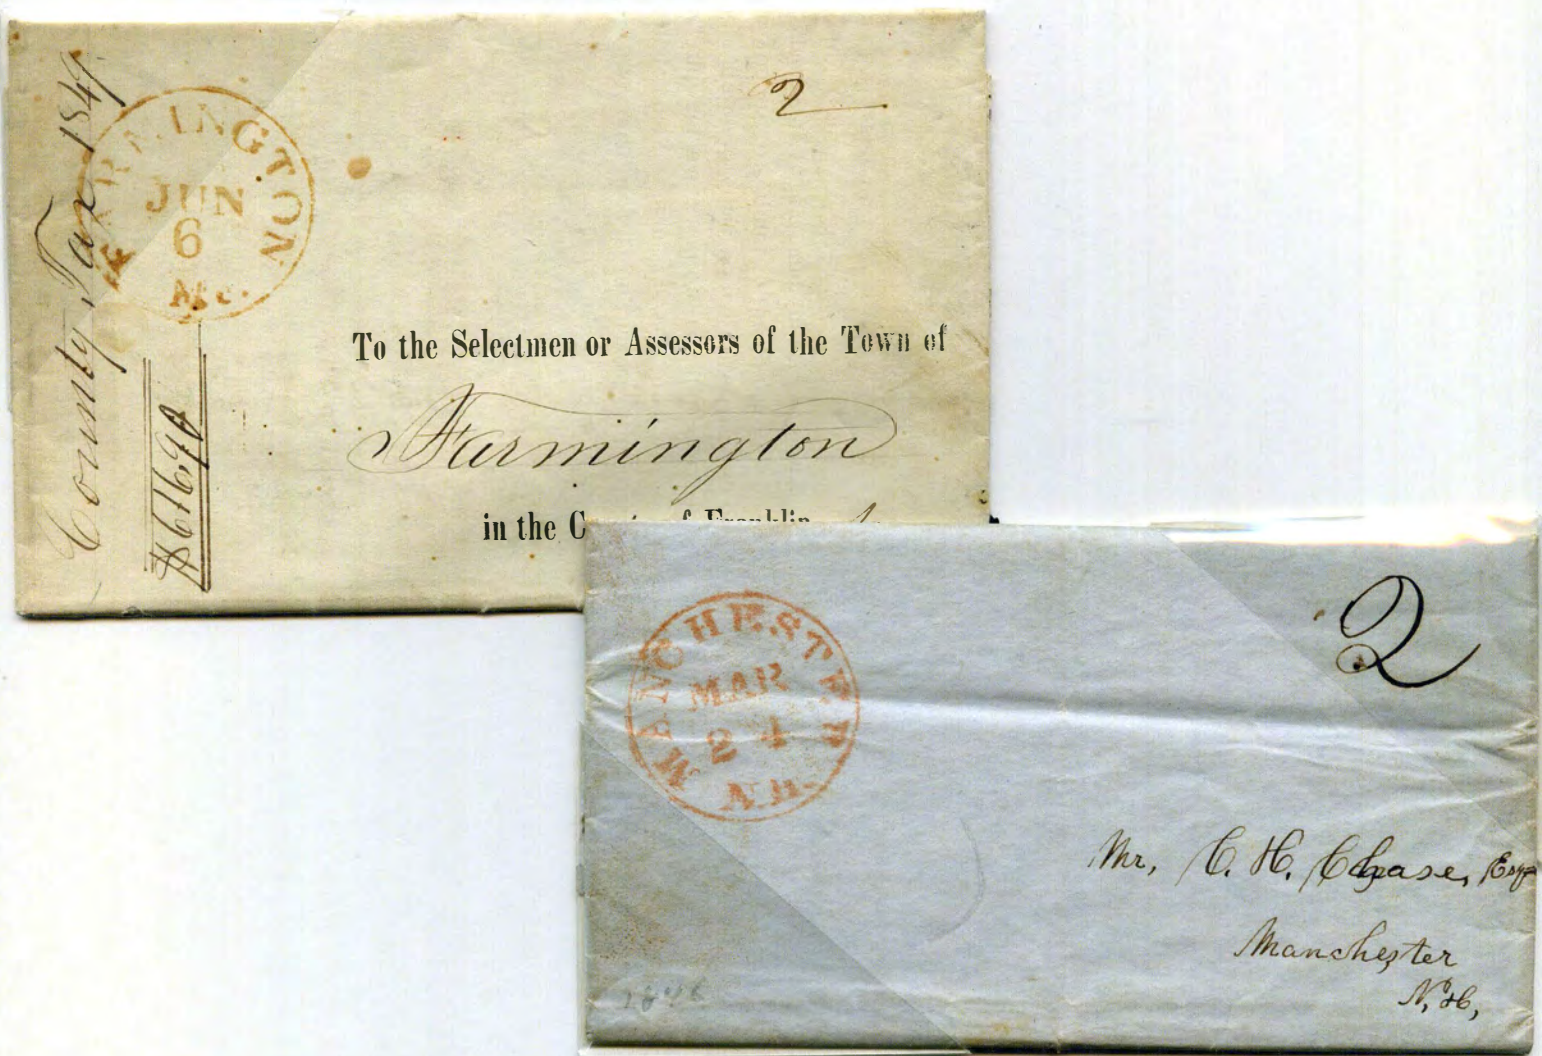 County Tax 1847.
$616,90
FARMINGTON
JUN
6
Me.
2
To the Selectmen or Assessors of the Town of
Farmington
in the County of Franklin
MANCHESTER
MAR
24
N.H.
2
Mr, C. H. Chase, Esq
Manchester
N, H,
1846